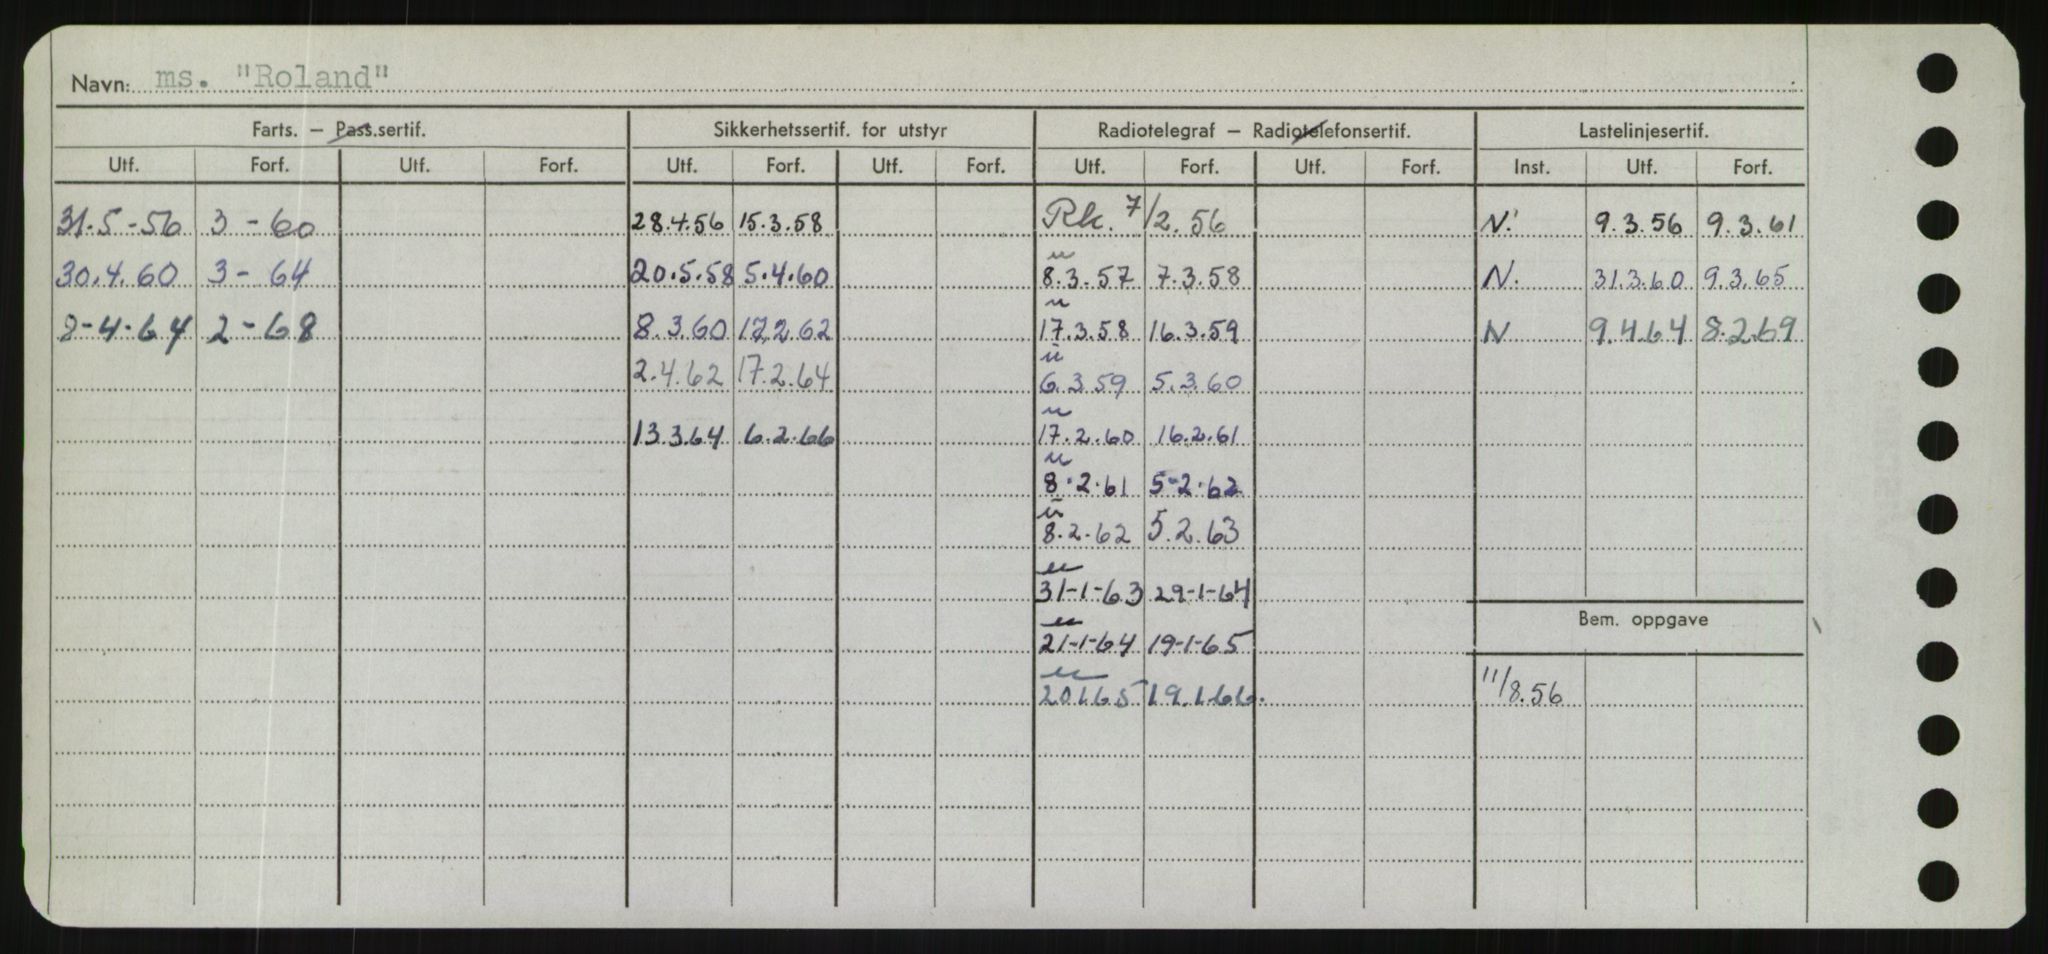 Navn: ms. "Roland"
Farts. – Pass.sertif. Sikkerhetssertif. for utstyr Radiotelegraf – Radiotelefonsertif. Lastelinjesertif.
Utf. Forf. Utf. Forf. Utf. Forf. Utf. Forf. Utf. Forf. Utf. Forf. Inst. Utf. Forf.
31.5-56 3-60 28.4.56 15.3.58 Rk. 7/2.56 N. 9.3.56 9.3.61
u
30.4.60 3-64 20.5.58 5.4.60 8.3.57 7.3.58 N. 31.3.60 9.3.65
u
8-4-64 2-68 8.3.60 17.2.62 17.3.58 16.3.59 N 9.4.64 8.2.69
u
2.4.62 17.2.64 6.3.59 5.3.60
u
13.3.64 6.2.66 17.2.60 16.2.61
u
8.2.61 5-2.62
u
8.2.62 5.2.63
u
31-1-63 29-1-64
u
Bem. oppgave
21-1-64 19-1-65
u
20.1.65 19.1.66. 11/8.56